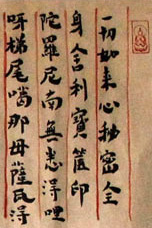 一切如來心秘密全
身舍利寶篋印
陀羅尼南無悉得哩
呀梯尾噶那母薩氐得